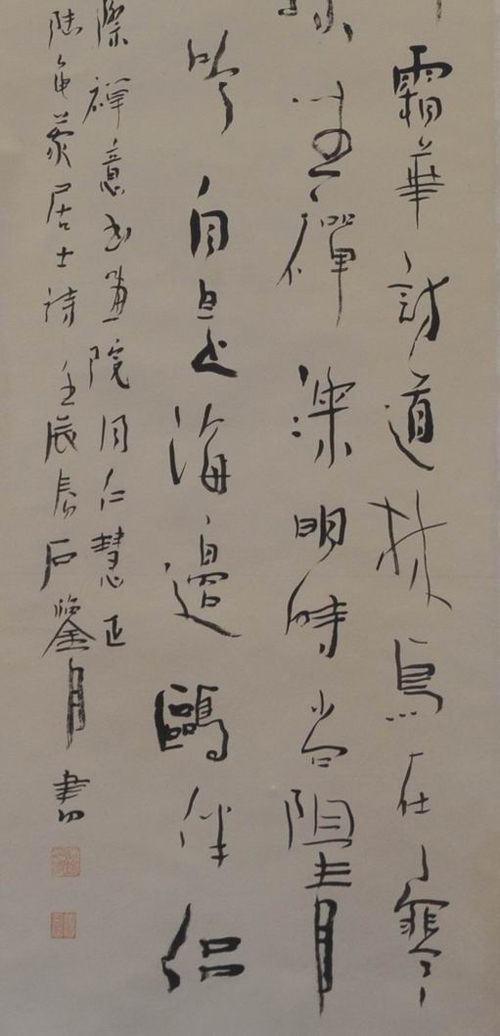 霜華訪道林鳥在寒
坐禪深明時尚阻青
吟自是海邊鷗伴侶
際禪意書畫院同仁慧正
陸龜蒙居士詩壬辰石鑒月書